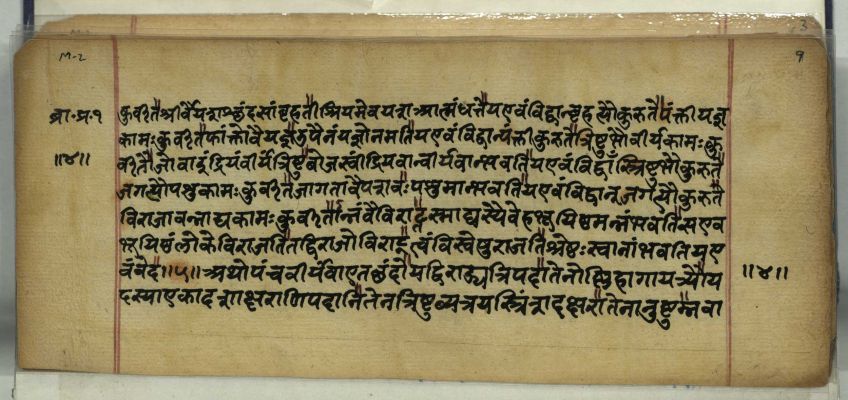 M-2
9
ब्रा॰प्र॰१
कुर्वीत श्रीर्वै यशश्छंदसां बृहती श्रियमेव यश आत्मंधत्ते य एवं विद्वान्बृहत्यौ कुरुते पंक्ती यज्ञ
कामः कुर्वीत पांक्तो वै यज्ञ उपैनं यज्ञो नमति य एवं विद्वान्पंक्ती कुरुते त्रिष्टुभौ वीर्यकामः कु
॥४॥
र्वीतौजो वा इंद्रियं वीर्यं त्रिष्टुबोजस्वींद्रियवान्वीर्यवान्भवति य एवं विद्वांस्त्रिष्टुभौ कुरुते
जगत्यौ पशुकामः कुर्वीत जागता वै पशवः पशुमान्भवति य एवं विद्वान् जगत्यौ कुरुते
विराजावन्नाद्यकामः कुर्वीतान्नं वै विराट् तस्माद्यस्यैवेह भूयिष्ठमन्नं भवति स एव
भूयिष्ठं लोके विराजति तद्विराजो विराट्त्वं वि स्वेषु राजति श्रेष्ठः स्वानां भवति य ए
वं वेद ॥५॥ अथो पंचवीर्यं वा एतच्छंदो यद्विराट् यत्त्रिपदा तेनोष्णिहा गायत्र्यौ य
॥४॥
दस्या एकादशाक्षराणि पदानि तेन त्रिष्टुब्यत्त्रयस्त्रिंशदक्षरा तेनानुष्टुम्न वा